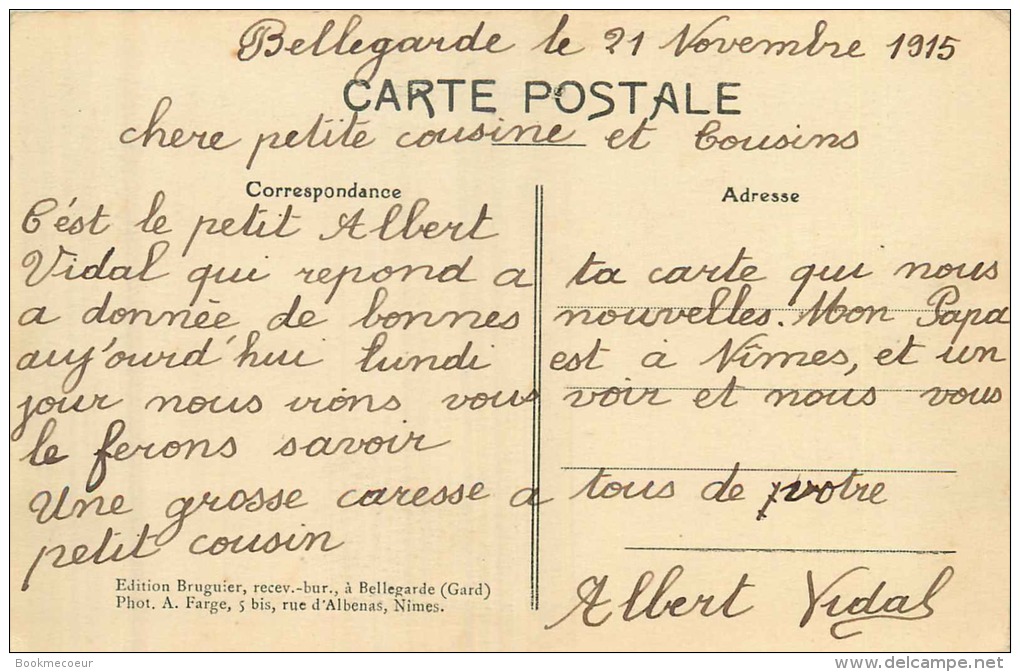 Bellegarde le 21 Novembre 1915
CARTE POSTALE
chere petite cousine et Cousins
Correspondance
Adresse
C'ést le petit Albert
Vidal qui repond a ta carte qui nous
a donnée de bonnes nouvelles. Mon Papa
auj'ourd'hui lundi est à Nîmes, et un
jour nous irons vous voir et nous vous
le ferons savoir
Une grosse caresse a tous de votre
petit cousin
Albert Vidal
Edition Bruguier, recev.-bur., à Bellegarde (Gard)
Phot. A. Farge, 5 bis, rue d'Albenas, Nimes.
Bookmecoeur
delcampe.net